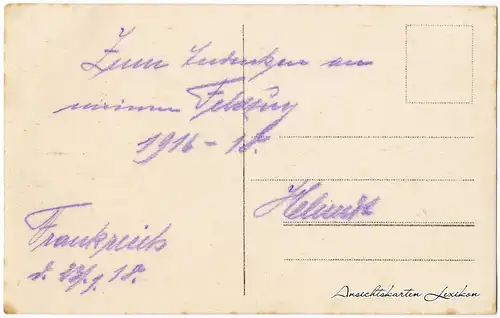 Zum Andenken an
meinen Feldzug
1916 - 18.
Frankreich
d. 23/9 18.
Ansichtskarten Lexikon